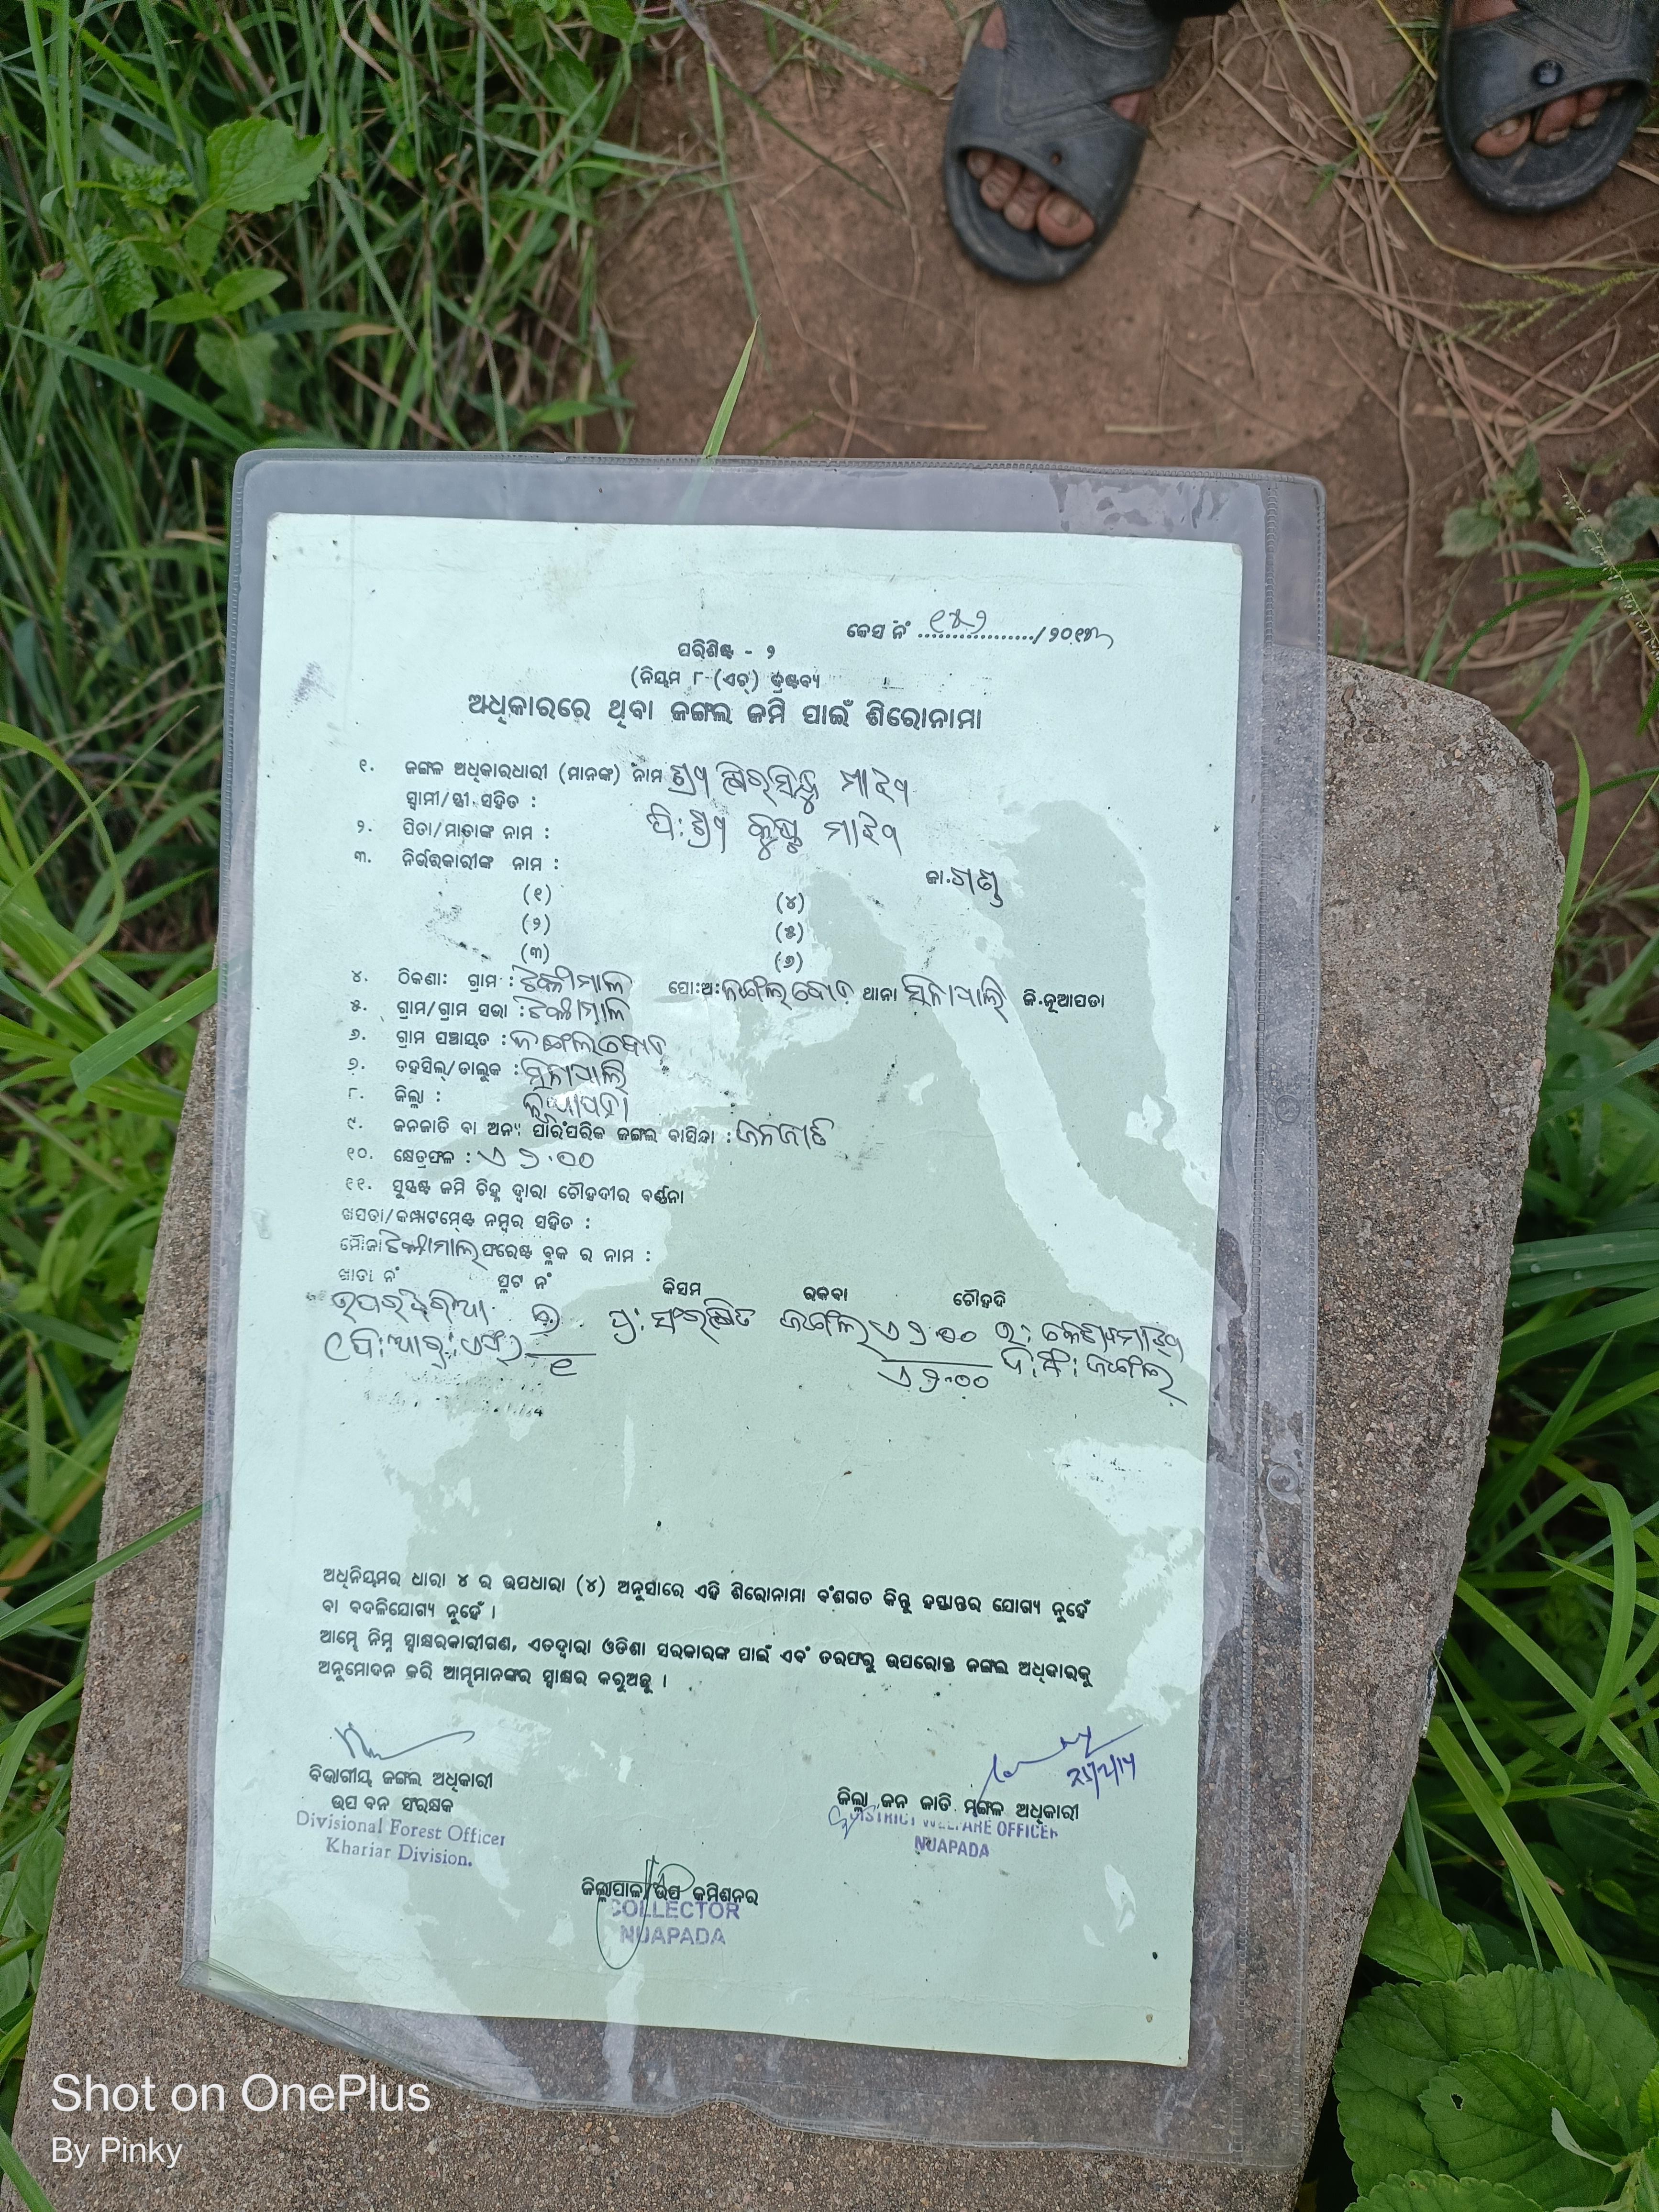 କେସ ନଂ ................./୨୦୧୩
ପରିଶିଷ୍ଟ - ୨
(ନିୟମ ୮ (ଏଚ୍) ଦ୍ରଷ୍ଟବ୍ୟ
ଅଧିକାରରେ ଥିବା ଜଙ୍ଗଲ ଜମି ପାଇଁ ଶିରୋନାମା
୧. ଜଙ୍ଗଲ ଅଧିକାରଧାରୀ (ମାନଙ୍କ) ନାମ ଶ୍ରୀ କ୍ଷିରସିନ୍ଧୁ ମାଝୀ
ସ୍ୱାମୀ/ସ୍ତ୍ରୀ ସହିତ :
୨. ପିତା/ମାତାଙ୍କ ନାମ : ପି: ଶ୍ରୀ କୃଷ୍ଣ ମାଝୀ
୩. ନିର୍ଭରକାରୀଙ୍କ ନାମ : ଜା.ଗଣ୍ଡ
(୧) (୪)
(୨) (୫)
(୩) (୬)
୪. ଠିକଣା: ଗ୍ରାମ : ପୋ:ଅ: ଥାନା ସିନାପାଲି ଜି.ନୂଆପଡା
୫. ଗ୍ରାମ/ଗ୍ରାମ ସଭା :
୬. ଗ୍ରାମ ପଞ୍ଚାୟତ :
୭. ତହସିଲ୍/ତାଲୁକ : ସିନାପାଲି
୮. ଜିଲ୍ଲା : ନୂଆପଡା
୯. ଜନଜାତି ବା ଅନ୍ୟ ପାରଂପରିକ ଜଙ୍ଗଲ ବାସିନ୍ଦା : ଜନଜାତି
୧୦. କ୍ଷେତ୍ରଫଳ : ଏ ୨.୦୦
୧୧. ସୁସ୍ପଷ୍ଟ ଜମି ଚିହ୍ନ ଦ୍ୱାରା ଚୌହଦୀର ବର୍ଣ୍ଣନା
ଖସଡା/କମ୍ପାଟମେଣ୍ଟ ନମ୍ବର ସହିତ :
ମୌଜା ଫରେଷ୍ଟ ବ୍ଲକ ର ନାମ :
ଖାତା ନଂ ପ୍ଲଟ ନଂ କିସମ ରକବା ଚୌହଦି
ପ୍ର: ସଂରକ୍ଷିତ ଜଙ୍ଗଲ ଏ ୨.୦୦ ଉ: ମାଝୀ
(ପି.ଆର୍.ଏଫ୍) ୧ ଏ ୨.୦୦ ଦ: ଜଙ୍ଗଲ
ଅଧିନିୟମର ଧାରା ୪ ର ଉପଧାରା (୪) ଅନୁସାରେ ଏହି ଶିରୋନାମା ବଂଶଗତ କିନ୍ତୁ ହସ୍ତାନ୍ତର ଯୋଗ୍ୟ ନୁହେଁ
ବା ବଦଳିଯୋଗ୍ୟ ନୁହେଁ ।
ଆମ୍ଭେ ନିମ୍ନ ସ୍ୱାକ୍ଷରକାରୀଗଣ, ଏତଦ୍ୱାରା ଓଡିଶା ସରକାରଙ୍କ ପାଇଁ ଏବଂ ତରଫରୁ ଉପରୋକ୍ତ ଜଙ୍ଗଲ ଅଧିକାରକୁ
ଅନୁମୋଦନ କରି ଆମ୍ଭମାନଙ୍କର ସ୍ୱାକ୍ଷର କରୁଅଛୁ ।
ବିଭାଗୀୟ ଜଙ୍ଗଲ ଅଧିକାରୀ
ଉପ ବନ ସଂରକ୍ଷକ
Divisional Forest Officer
Khariar Division.
ଜିଲ୍ଲା ଜନ ଜାତି ମଙ୍ଗଳ ଅଧିକାରୀ
DISTRICT WELFARE OFFICER
NUAPADA
ଜିଲ୍ଲାପାଳ/ଉପ କମିଶନର
COLLECTOR
NUAPADA
Shot on OnePlus
By Pinky